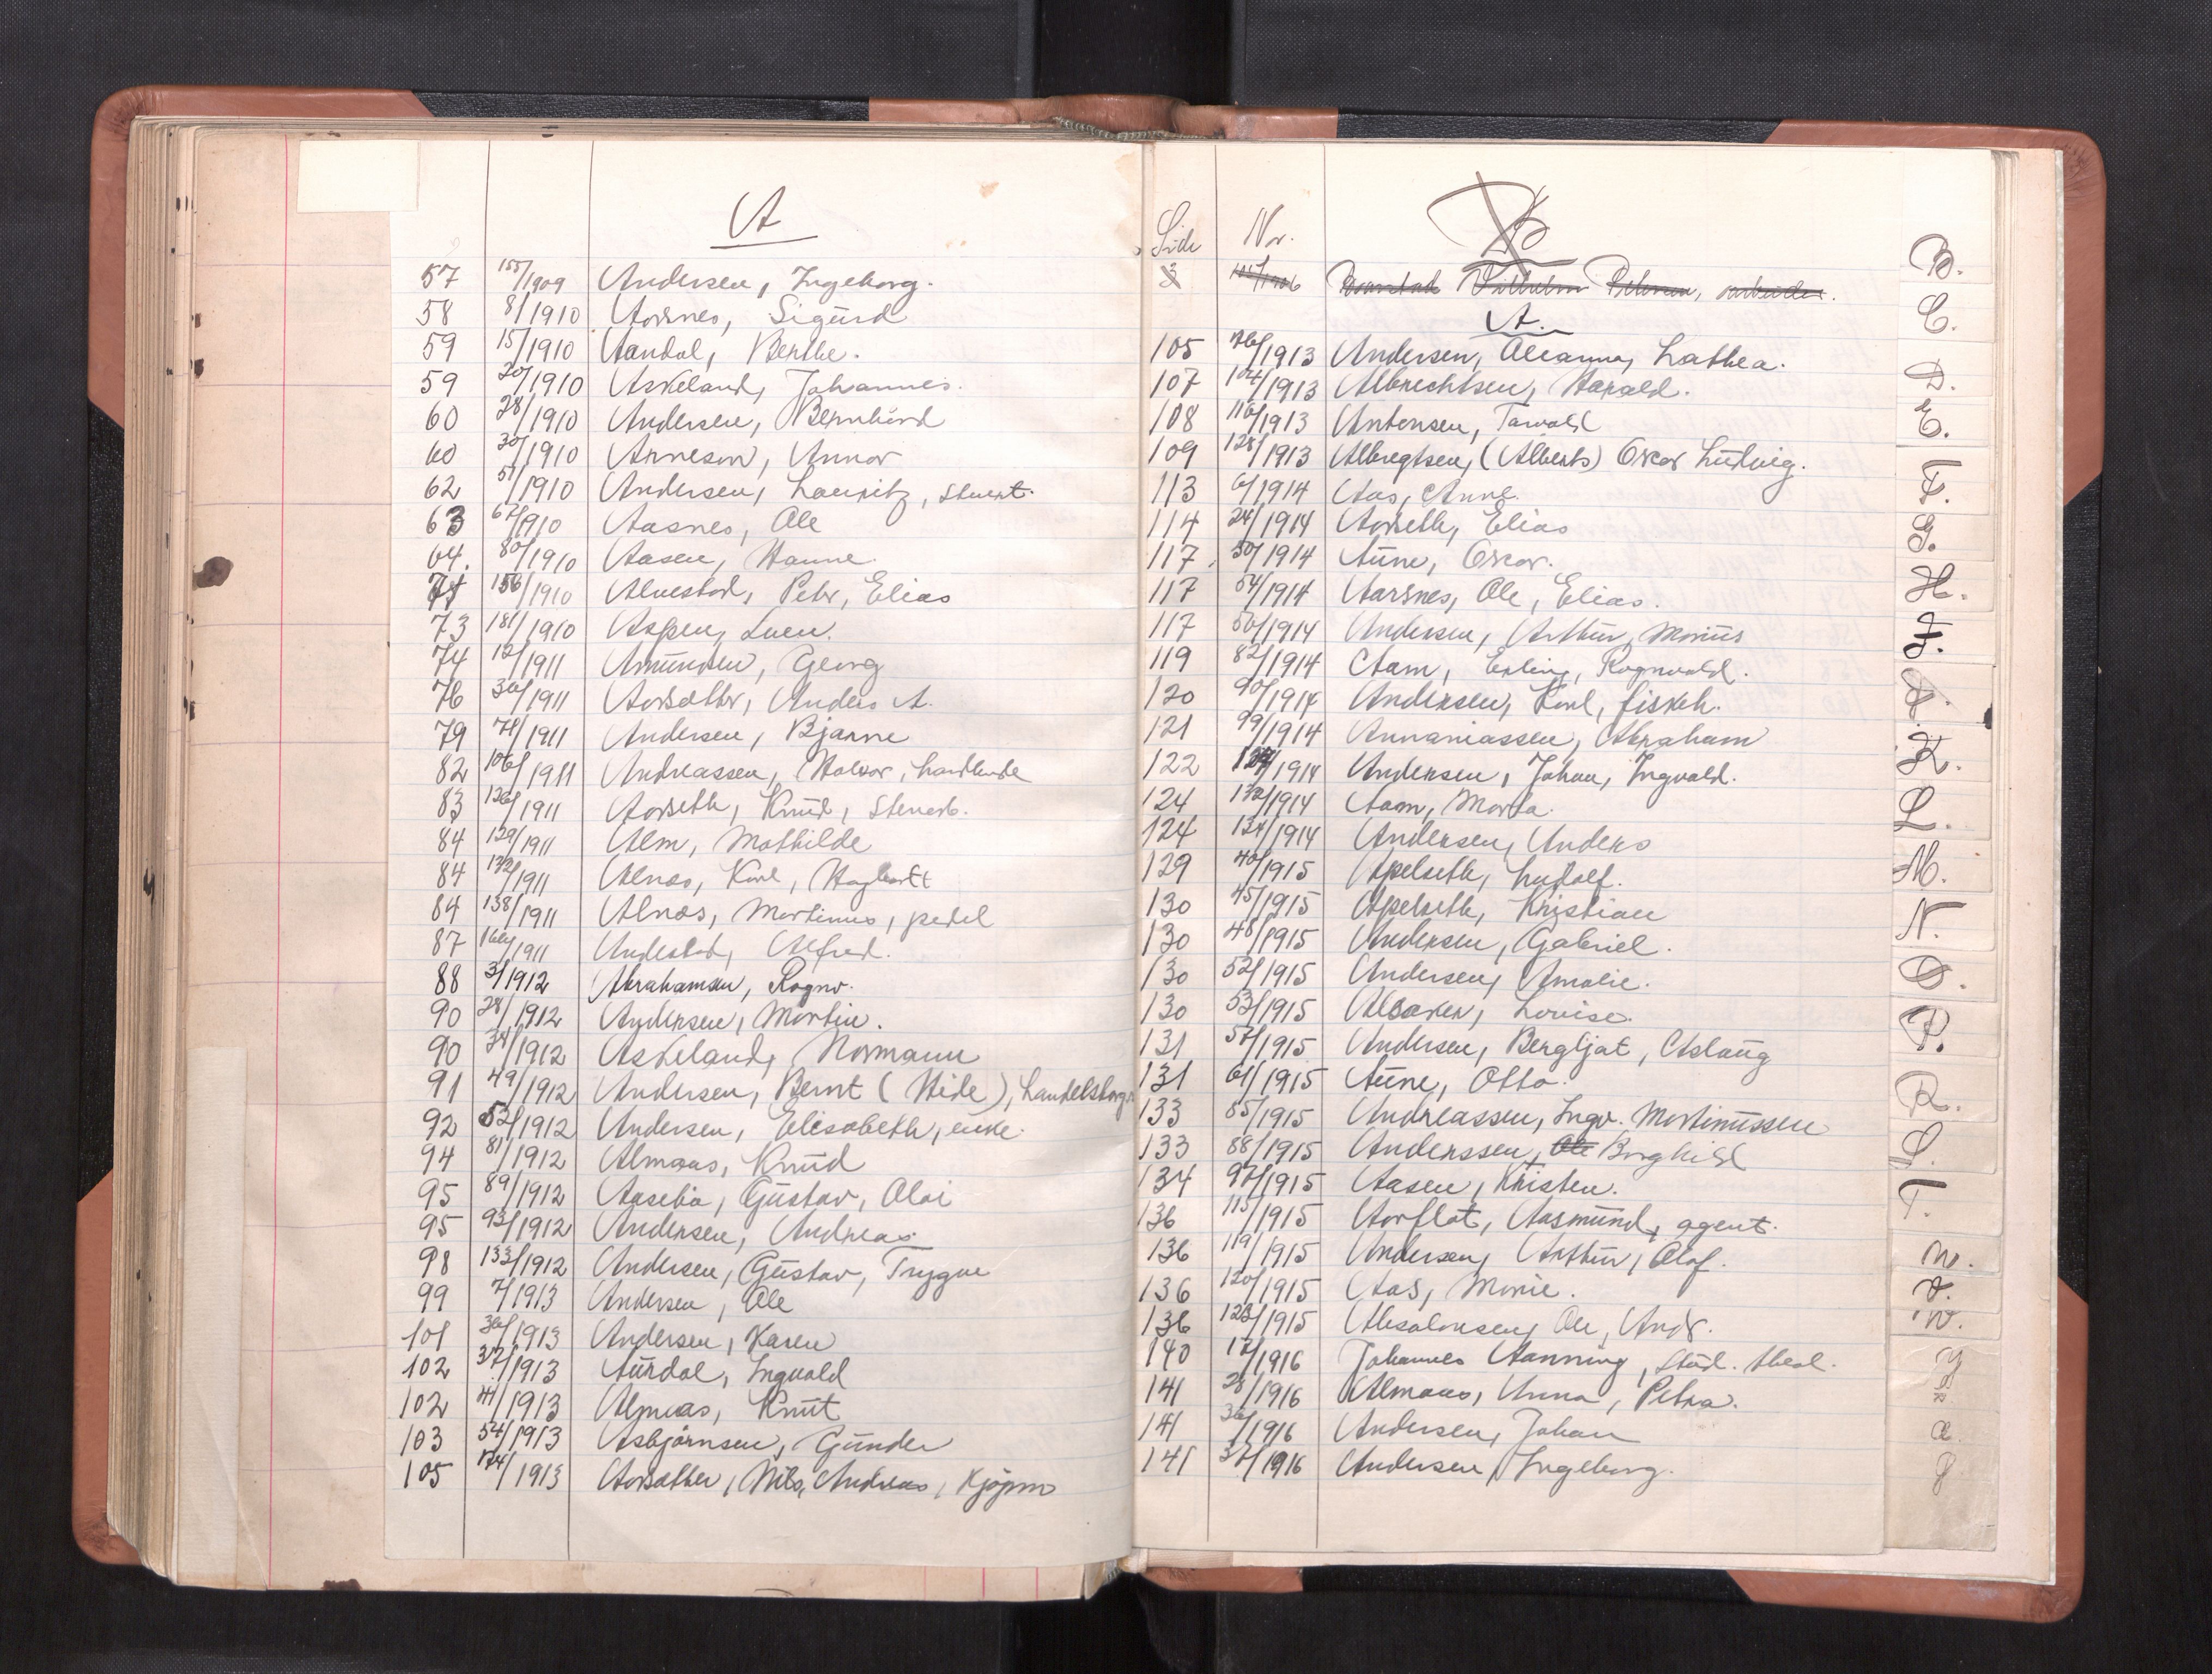 A
57 155/1909 Andersen, Ingeborg.
58 8/1910 Aarsnes, Sigurd
59 15/1910 Aandal, Berthe.
59 20/1910 Askeland, Johannes.
60 28/1910 Andersen, Bernhard
60 30/1910 Arneson, Annar
62 51/1910 Andersen, Lauritz, stuert.
63 67/1910 Aasnes, Ole
64. 80/1910 Aasen, Hanne
156/1910 Alvestad, Petr, Elias
73 181/1910 Aspen,
74 12/1911 Amundsen, Georg
76 36/1911 Aarsæther, Anders A.
79 78/1911 Andersen, Bjarne
82 106/1911 Andreassen, Halvor, handlende
83 126/1911 Aarseth, Knud, stuerb.
84 129/1911 Alm, Mathilde
84 132/1911 Alnæs, Karl, Hagbart
84 138/1911 Alnæs, Martinus, pedel
87 1911 Andestad, Alfred.
88 3/1912 Abrahamsen, Ragnv.
90 28/1912 Andersen, Martin.
90 34/1912 Askeland, Normann
91 49/1912 Andersen, Bernt (Hide), handelsborg.
92 52/1912 Andersen, Elisabeth, enke.
94 81/1912 Almaas, Knud
95 89/1912 Aasebø, Gustav, Olai
95 93/1912 Andersen, Andreas
98 133/1912 Andersen, Gustav, Trygve
99 7/1913 Andersen, Ole
101 36/1913 Andersen, Karen
102 37/1913 Aurdal, Ingvald
102 41/1913 Almaas, Knut
103 54/1913 Asbjørnsen, Gunder
105 74/1913 Aarsæther, Nils, Andreas, Kjøpm
Side Nr. B
3 Wilhelm Petersen, arbeider.
A.
105 76/1913 Andersen, Oleanna, Lathea.
107 104/1913 Albrechtsen, Harald.
108 116/1913 Antonsen, Torvald
109 128/1913 Albregtsen, (Alberts) Oscar Ludvig.
113 6/1914 Aas, Anne.
114 24/1914 Aarseth, Elias
117 50/1914 Aune, Oscar.
117 54/1914 Aarsnes, Ole, Elias.
117 56/1914 Andersen, Arthur, Marius
119 82/1914 Aam, Erling, Ragnvald.
120 90/1914 Andersen, Karl, fiskeh.
121 99/1914 Annaniassen, Abraham
122 1914 Andersen, Johan, Ingvald.
124 132/1914 Aam, Marta.
124 134/1914 Andersen, Anders
129 40/1915 Apelseth, Ludolf.
130 45/1915 Apelseth, Kristian
130 48/1915 Andersen, Gabriel.
130 52/1915 Andersen, Amalie.
130 53/1915 Alsaker, Louise.
131 57/1915 Andersen, Bergljot, Aslaug
131 61/1915 Aune, Otto.
133 85/1915 Andreassen, Ingv. Martinussen
133 88/1915 Anderssen, Ole Borghild
134 97/1915 Aasen, Kristen.
136 115/1915 Aarflot, Aasmund, agent.
136 119/1915 Andersen, Arthur, Olaf.
136 120/1915 Aas, Marie.
136 123/1915 Absalonsen, Ole, Andr.
140 17/1916 Johannes Aanning, stud. theol.
141 28/1916 Almaas, Anna, Petra.
141 36/1916 Andersen, Johan
141 37/1916 Andersen, Ingeborg.
B.
C.
D.
E.
F.
G.
H.
I.
J.
K.
L.
M.
N.
O.
P.
R.
S.
T.
U.
V.
W.
Y
Z
Æ
Ø